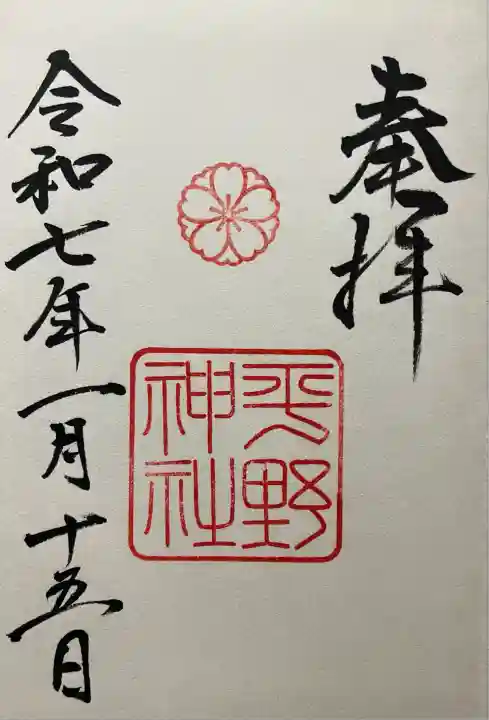 奉拝
平野
神社
令和七年一月十五日